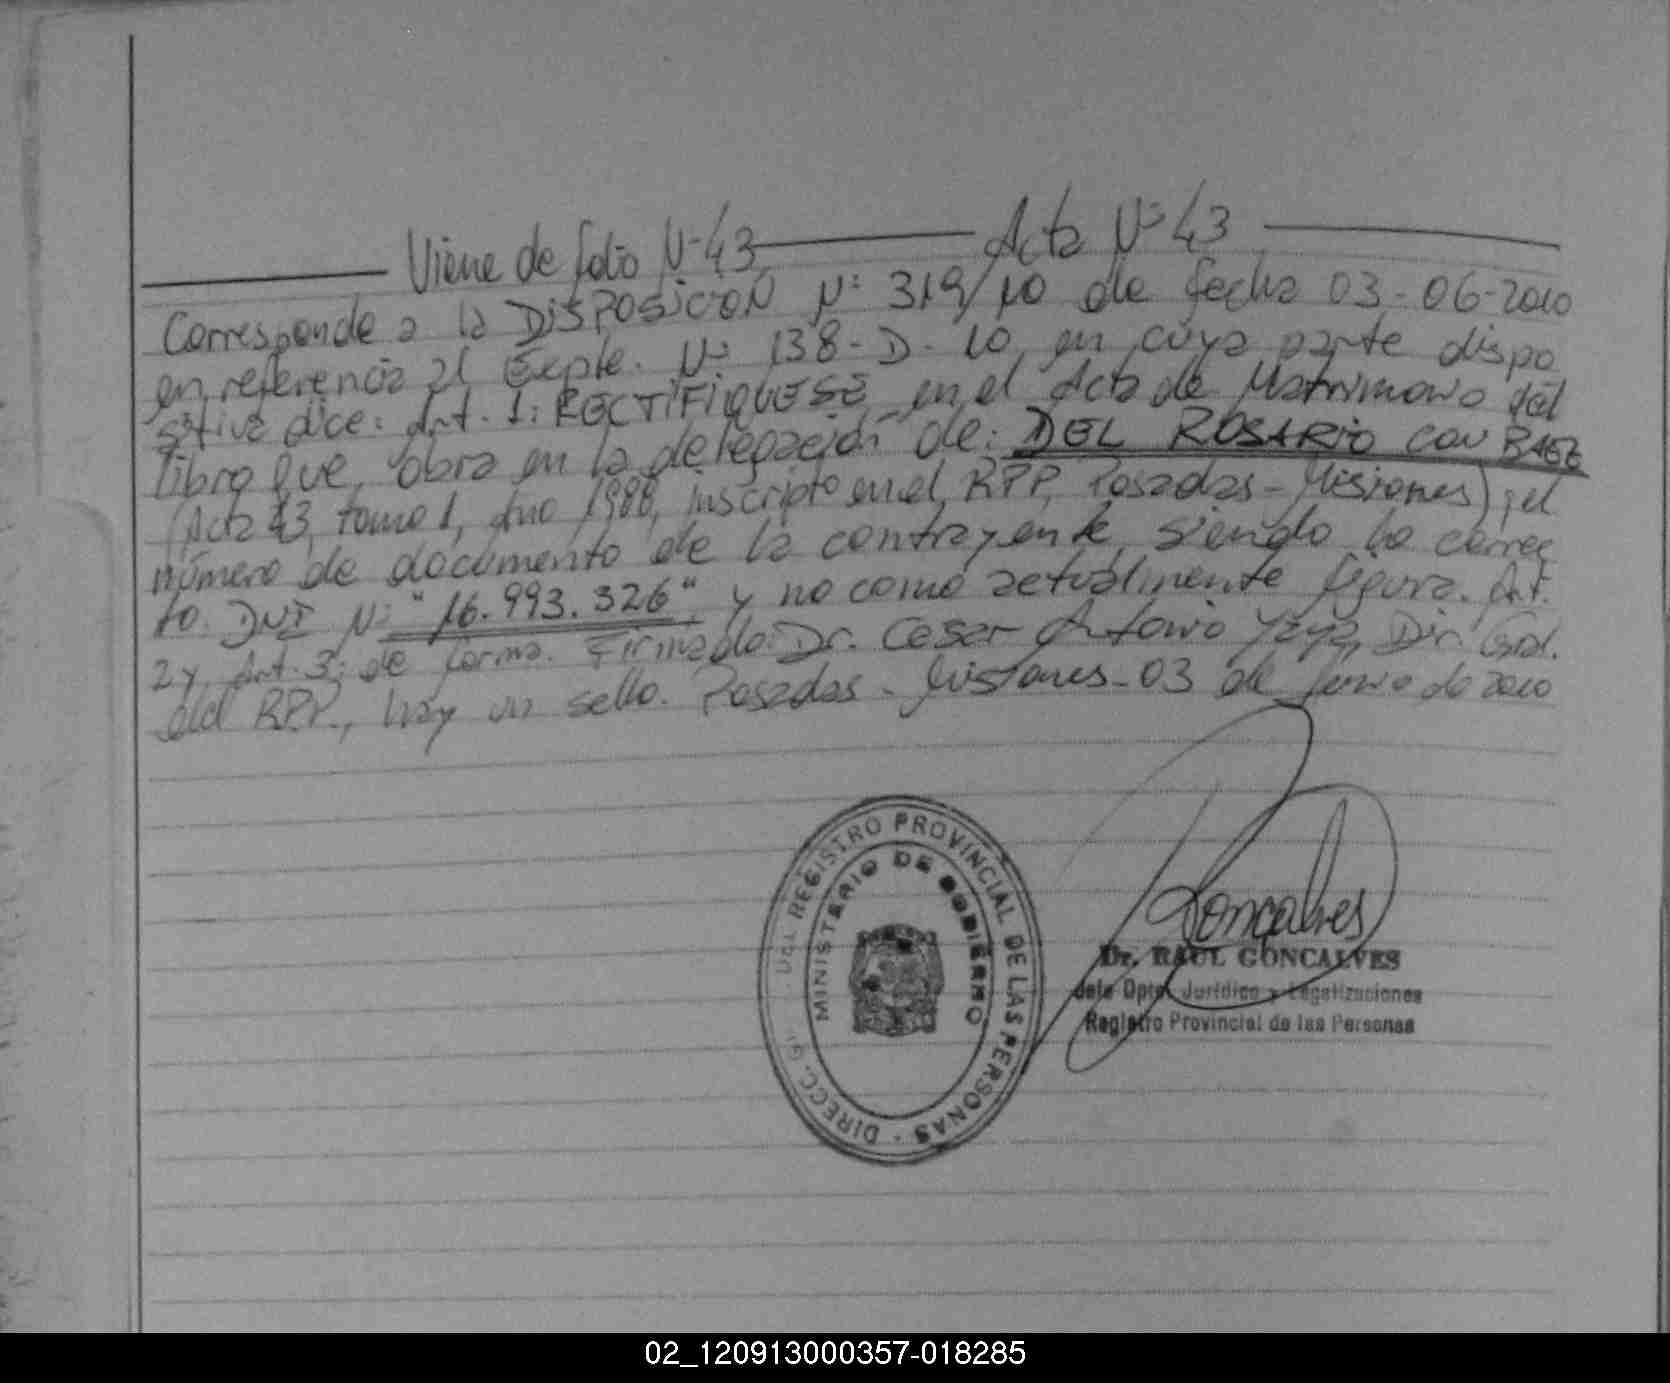 Viene de folio N-43 Acta Nº 43
Corresponde a la DISPOSICION Nº 319/10 de fecha 03-06-2010
en referencia al Expte. Nº 138-D-10, en cuya parte dispo
sitiva dice: Art. 1: RECTIFIQUESE en el Acta de Matrimonio del
libro que obra en la delegación de: DEL ROSARIO CON BAEZ
(Acta 43, tomo 1, Año 1988, inscripto en el RPP, Posadas-Misiones), el
número de documento de la contrayente, siendo lo correc
to. DNI Nº "16.993.326" y no como actualmente figura. Art.
2 y Art. 3: de forma. Firmado: Dr. Cesar Antonio Yaya, Dir. Gral.
del RPP., hay un sello. Posadas-Misiones-03 de Junio de 2010
DIRECC. GRAL. DEL REGISTRO PROVINCIAL DE LAS PERSONAS -
MINISTERIO DE GOBIERNO
Goncalves
Dr. RAUL GONCALVES
Jefe Dpto. Jurídico y Legalizaciones
Registro Provincial de las Personas
02_120913000357-018285